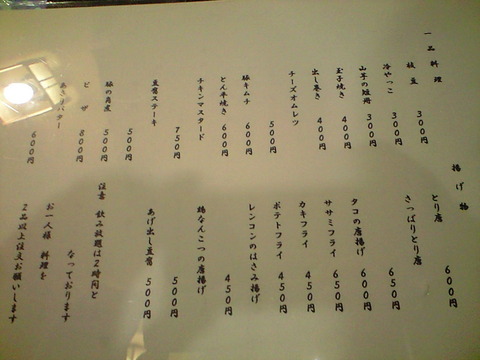 一品料理
枝豆 300円
冷やっこ 300円
山芋の短冊 300円
玉子焼き 400円
出し巻き 400円
チーズオムレツ
500円
豚キムチ 600円
とん平焼き 600円
チキンマスタード
750円
豆腐ステーキ
500円
豚の角煮 500円
ピザ 800円
あさりバター
600円
揚げ物
とり唐 600円
さっぱりとり唐
650円
タコの唐揚げ 600円
ササミフライ 650円
カキフライ 450円
ポテトフライ 450円
レンコンのはさみ揚げ
450円
鶏なんこつの唐揚げ
500円
あげ出し豆腐 500円
注意 飲み放題は2時間と
なっております
お一人様 料理を
2品以上注文お願いします